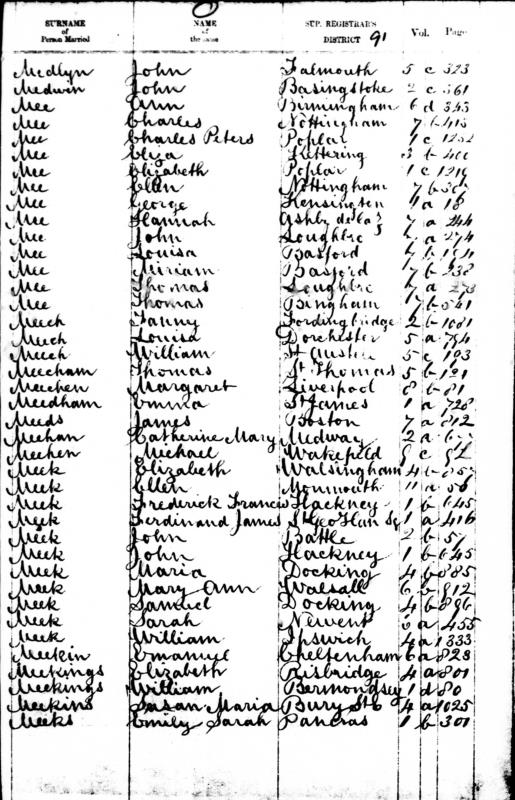 SURNAME NAME SUP. REGISTRAR'S Vol. Page
of Person Married of the same DISTRICT 91
Medlyn John Falmouth 5 c 323
Medwin John Basingstoke 2 c 361
Mee Ann Birmingham 6 d 343
Mee Charles Nottingham 7 b 413
Mee Charles Peters Poplar 1 c 1252
Mee Eliza Kettering 3 b 400
Mee Elizabeth Poplar 1 c 1219
Mee Ellen Nottingham 7 b
Mee George Kensington 1 a 18
Mee Hannah Ashby de la Z 7 a 244
Mee John Loughbro 7 a 274
Mee Louisa Basford 7 b
Mee Miriam Basford 7 b 238
Mee Thomas Loughbro 7 a 273
Mee Thomas Bingham 7 b 541
Meech Fanny Fordingbridge 2 b 1081
Meech Louisa Dorchester 5 a 794
Meech William St Austell 5 c 193
Meecham Thomas St Thomas 5 b 121
Meechen Margaret Liverpool 8 b 81
Meedham Emma St James 1 a 728
Meeds James Boston 7 a 812
Meehan Catherine Mary Medway 2 a
Meehen Michael Wakefield 9 c 82
Meek Elizabeth Walsingham 4 b 857
Meek Ellen Monmouth 11 a 56
Meek Frederick Francis Hackney 1 b 645
Meek Ferdinand James St Geo Han Sq 1 a 416
Meek John Battle 2 b 57
Meek John Hackney 1 b 645
Meek Maria Docking 4 b 885
Meek Mary Ann Walsall 6 b 812
Meek Samuel Docking 4 b 886
Meek Sarah Newent 6 a 455
Meek William Ipswich 4 a 1333
Meekin Emanuel Cheltenham 6 a 828
Meekings Elizabeth Risbridge 4 a 801
Meekings William Bermondsey 1 d 80
Meekins Susan Maria Bury St E 4 a 1025
Meeks Emily Sarah Pancras 1 b 301